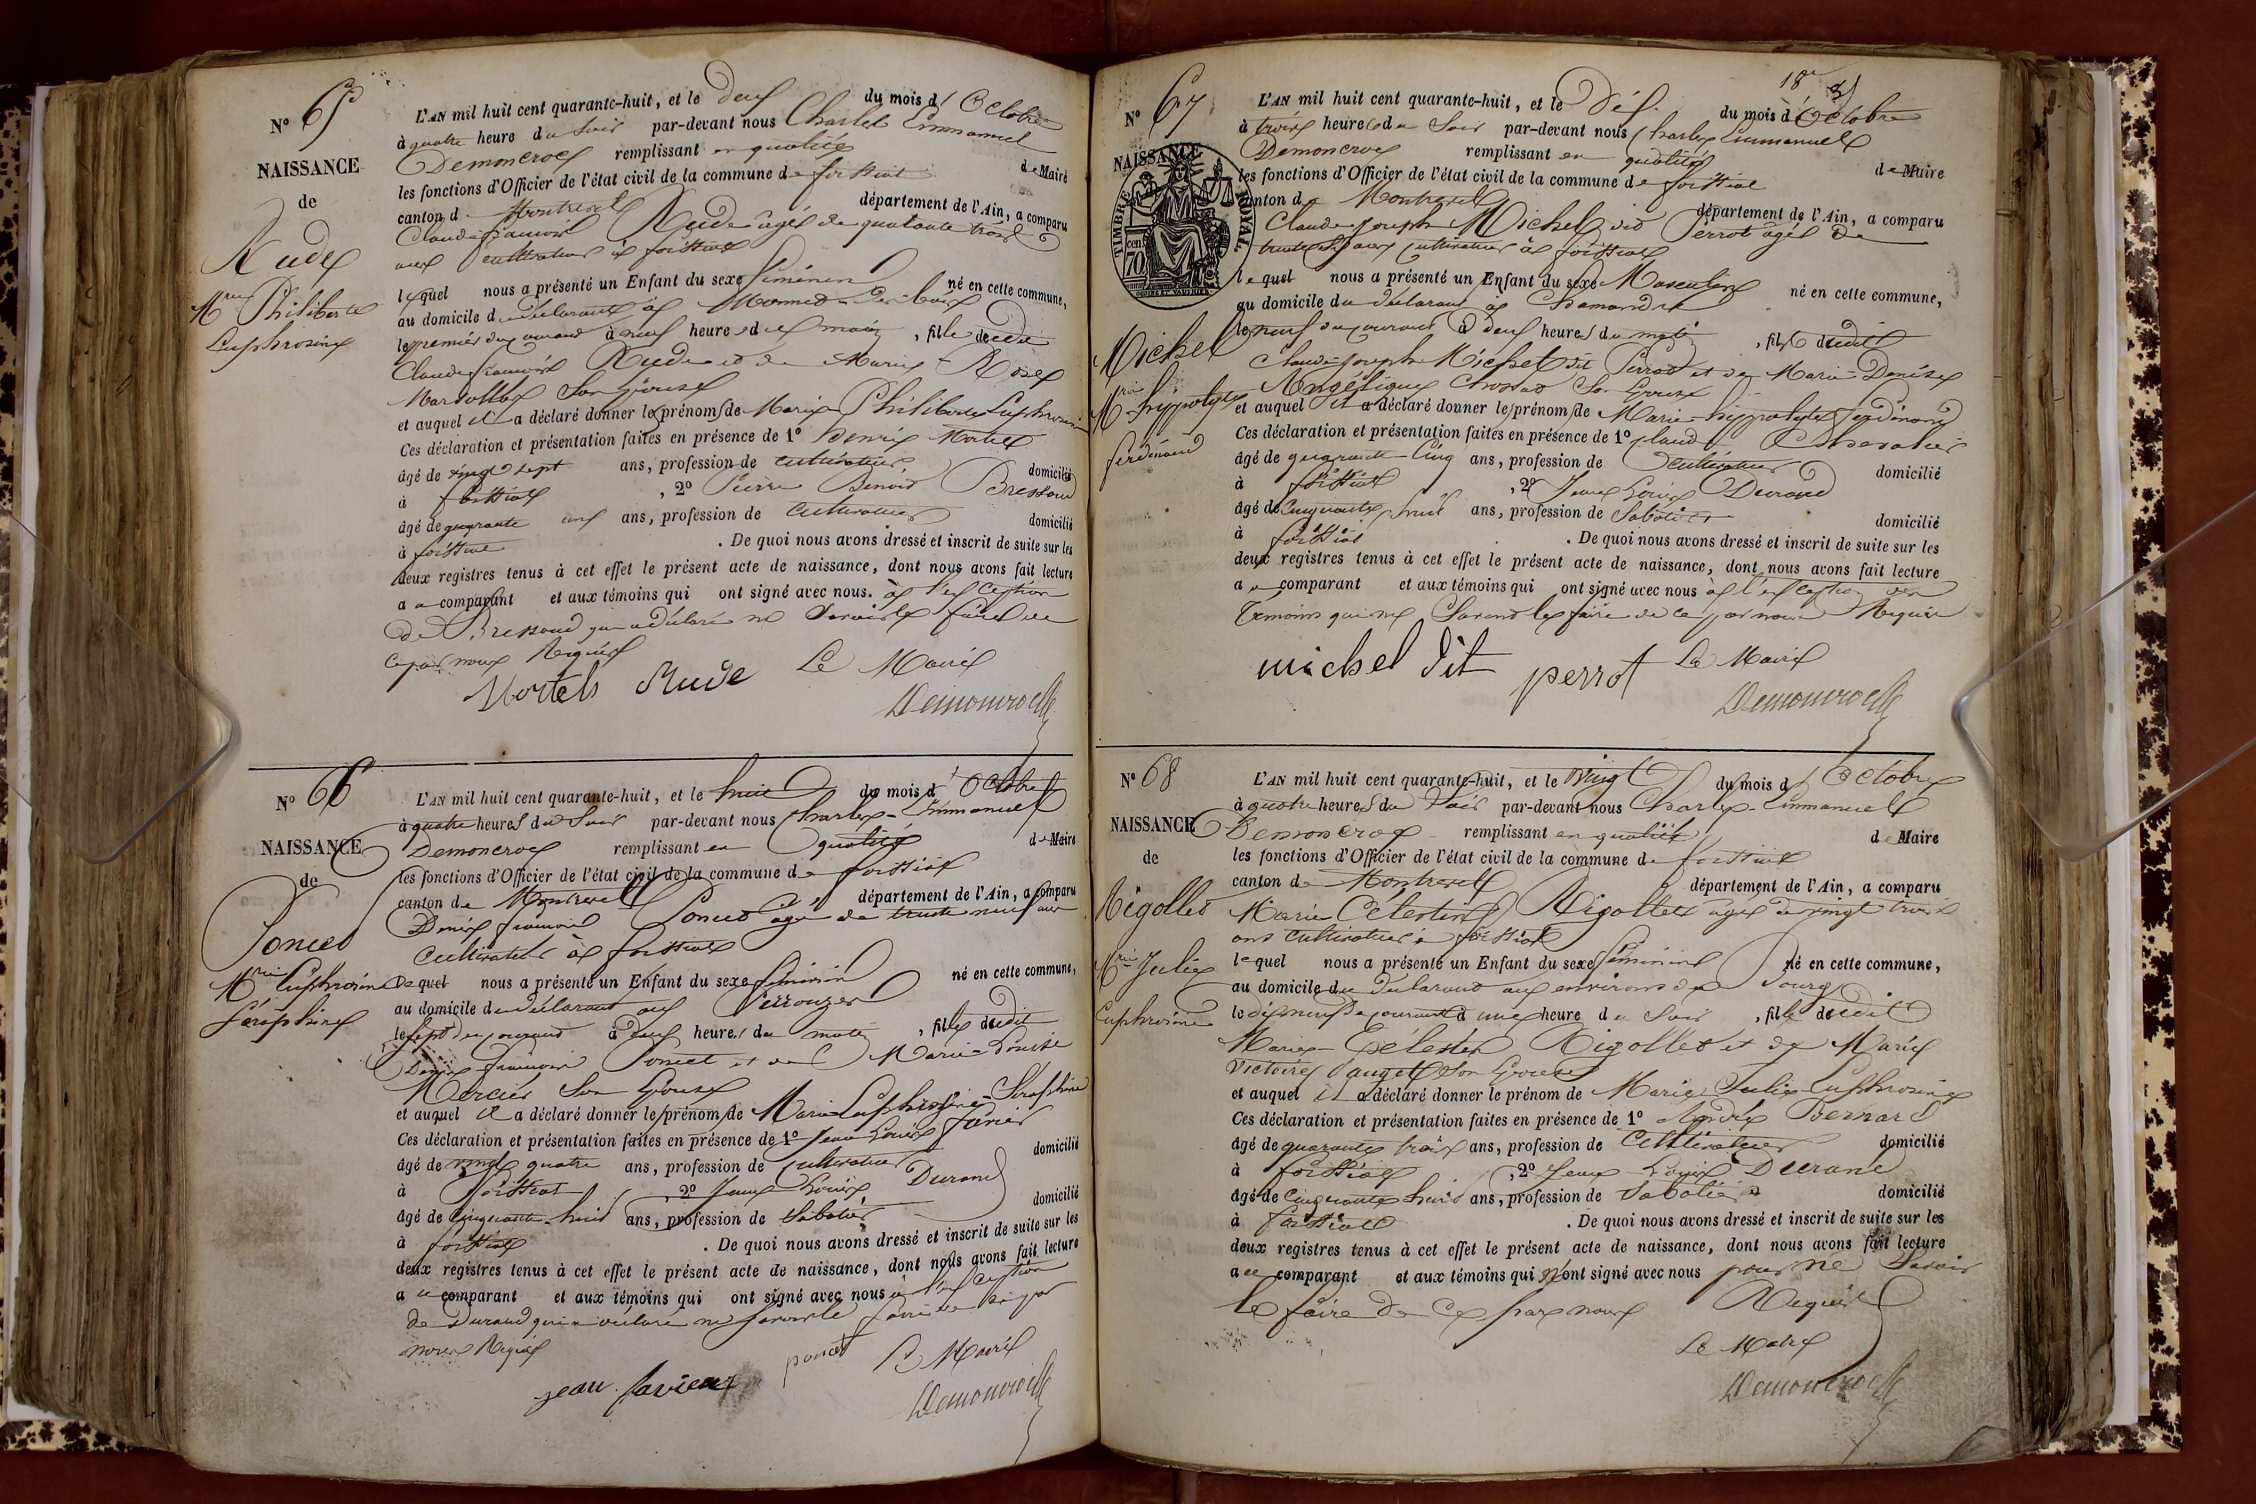 N° 65
NAISSANCE
de
Rude
Mrie Philiberte
Euphrosine
L'AN mil huit cent quarante-huit, et le deux du mois d'Octobre
à quatre heure du Soir par-devant nous Charles Emmanuel
Demoncroex remplissant en qualité de Maire
les fonctions d'Officier de l'état civil de la commune de foissiat
canton de Montrevel département de l'Ain, a comparu
Claude françois Rude agé de quarante trois
ans Cultivateur à foissiat
lequel nous a présenté un Enfant du sexe féminin né en cette commune,
au domicile du déclarant à
le premier du courant à neuf heures du matin, fille dudit
Claude françois Rude et de Marie Rose
Son Epouse
et auquel il a déclaré donner les prénoms de Marie Philiberte Euphrosine
Ces déclaration et présentation faites en présence de 1° henri
âgé de vingt sept ans, profession de cultivateur, domicilié
à foissiat, 2° Pierre Benoit Bressoud
âgé de quarante ans, profession de Cultivateur domicilié
à foissiat. De quoi nous avons dressé et inscrit de suite sur les
deux registres tenus à cet effet le présent acte de naissance, dont nous avons fait lecture
au comparant et aux témoins qui ont signé avec nous. à l'exception
de Bressoud qui a déclaré ne Savoir le faire de
ce par nous Requis
Rude Le Maire
N° 66
NAISSANCE
de
Poncet
Mrie Euphrosine
Séraphine
L'AN mil huit cent quarante-huit, et le huit du mois d'Octobre
à quatre heures du Soir par-devant nous Charles-Emmanuel
Demoncroex remplissant en qualité de Maire
les fonctions d'Officier de l'état civil de la commune de foissiat
canton de Montrevel département de l'Ain, a comparu
Denis françois Poncet agé de trente neuf ans
Cultivateur à foissiat
lequel nous a présenté un Enfant du sexe féminin né en cette commune,
au domicile du déclarant aux Perrouzes
le sept du courant à deux heures du matin, fille dudit
Denis françois Poncet et de Marie Louise
Mercier Son Epouse
et auquel il a déclaré donner les prénoms de Marie Euphrosine-Séraphine
Ces déclaration et présentation faites en présence de 1° Jean Louis favier
âgé de vingt quatre ans, profession de cultivateur domicilié
à foissiat, 2° Jean Louis Durand
âgé de cinquante-huit ans, profession de Sabotier domicilié
à foissiat. De quoi nous avons dressé et inscrit de suite sur les
deux registres tenus à cet effet le présent acte de naissance, dont nous avons fait lecture
au comparant et aux témoins qui ont signé avec nous à l'exception
de Durand qui a déclaré ne Savoir le faire de ce par
nous Requis
jean favier poncet Le Maire
18e
N° 67
NAISSANCE
TIMBRE ROYAL
cen. 70
Michel
Mrie hippolyte
ferdinand
L'AN mil huit cent quarante-huit, et le dix du mois d'Octobre
à trois heures du Soir par-devant nous Charles Emmanuel
Demoncroex remplissant en qualité de Maire
les fonctions d'Officier de l'état civil de la commune de foissiat
canton de Montrevel département de l'Ain, a comparu
Claude joseph Michel dit Perrot agé de
trente ans cultivateur à foissiat
lequel nous a présenté un Enfant du sexe Masculin né en cette commune,
au domicile du déclarant à
le neuf du courant à deux heures du matin, fils dudit
Claude-joseph Michel dit Perrot et de Marie-Denise
Angélique Chossat Son Epouse
et auquel il a déclaré donner les prénoms de Marie-hippolyte ferdinand
Ces déclaration et présentation faites en présence de 1° Claude
âgé de quarante-Cinq ans, profession de Cultivateur domicilié
à foissiat, 2° Jean Louis Durand
âgé de cinquante huit ans, profession de Sabotier domicilié
à foissiat. De quoi nous avons dressé et inscrit de suite sur les
deux registres tenus à cet effet le présent acte de naissance, dont nous avons fait lecture
au comparant et aux témoins qui ont signé avec nous à l'exception des
Témoins qui ne Savent le faire de ce par nous Requis
michel dit perrot Le Maire
N° 68
NAISSANCE
de
Rigollet
Mrie Julie
Euphrosine
L'AN mil huit cent quarante-huit, et le vingt du mois d'Octobre
à quatre heures du Soir par-devant nous Charles-Emmanuel
Demoncroex remplissant en qualité de Maire
les fonctions d'Officier de l'état civil de la commune de foissiat
canton de Montrevel département de l'Ain, a comparu
Marie Célestin Rigollet agé de vingt trois
ans cultivateur à foissiat
lequel nous a présenté un Enfant du sexe féminin né en cette commune,
au domicile du déclarant aux environs du Bourg
le dixneuf du courant à une heure du Soir, fille dudit
Marie-Célestin Rigollet et de Marie
Victoire Son Epouse
et auquel il a déclaré donner le prénom de Marie Julie Euphrosine
Ces déclaration et présentation faites en présence de 1° Bernard
âgé de quarante trois ans, profession de Cultivateur domicilié
à foissiat, 2° Jean Louis Durand
âgé de cinquante huit ans, profession de Sabotier domicilié
à foissiat. De quoi nous avons dressé et inscrit de suite sur les
deux registres tenus à cet effet le présent acte de naissance, dont nous avons fait lecture
au comparant et aux témoins qui n'ont signé avec nous pour ne Savoir
le faire de Ce par nous Requis
Le Maire